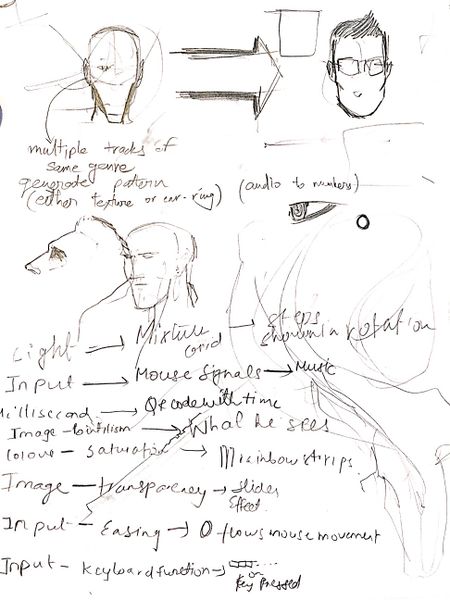 multiple tracks of
same genre
generate pattern
(either texture or ear-ring) (audio to numbers)
Light → Mixture grid → steps shown in rotation
Input → Mouse Signals → Music
Millisecond → QR code with time
Image - pointillism → What he sees
Colour - saturation → Mrainbow strips
Image - transparency → slides effect
Input - Easing → O flows mouse movement
Input - Keyboard function → or Key pressed